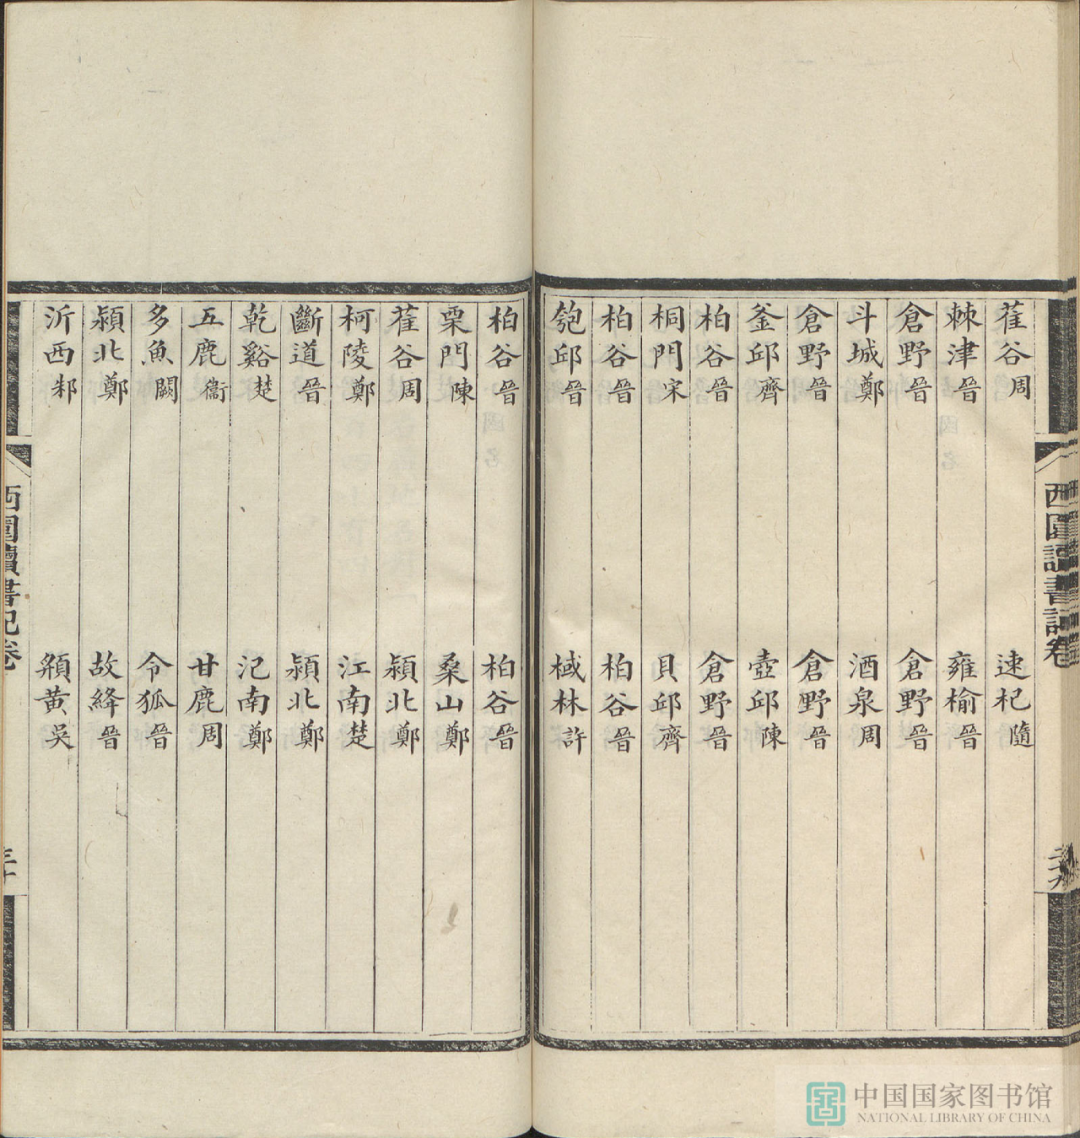 西圃讀書記卷
二十九
萑谷周 速杞隨
棘津晉 雍榆晉
倉野晉 倉野晉
斗城鄭 酒泉周
倉野晉 倉野晉
釜邱齊 壺邱陳
柏谷晉 倉野晉
桐門宋 貝邱齊
柏谷晉 柏谷晉
匏邱晉 棫林許
柏谷晉 柏谷晉
栗門陳 桑山鄭
萑谷周 潁北鄭
柯陵鄭 江南楚
斷道晉 潁北鄭
乾谿楚 氾南鄭
五鹿衞 甘鹿周
多魚闕 令狐晉
潁北鄭 故絳晉
沂西邾 頯黃吳
西圃讀書記卷
三十
中国国家图书馆
NATIONAL LIBRARY OF CHINA